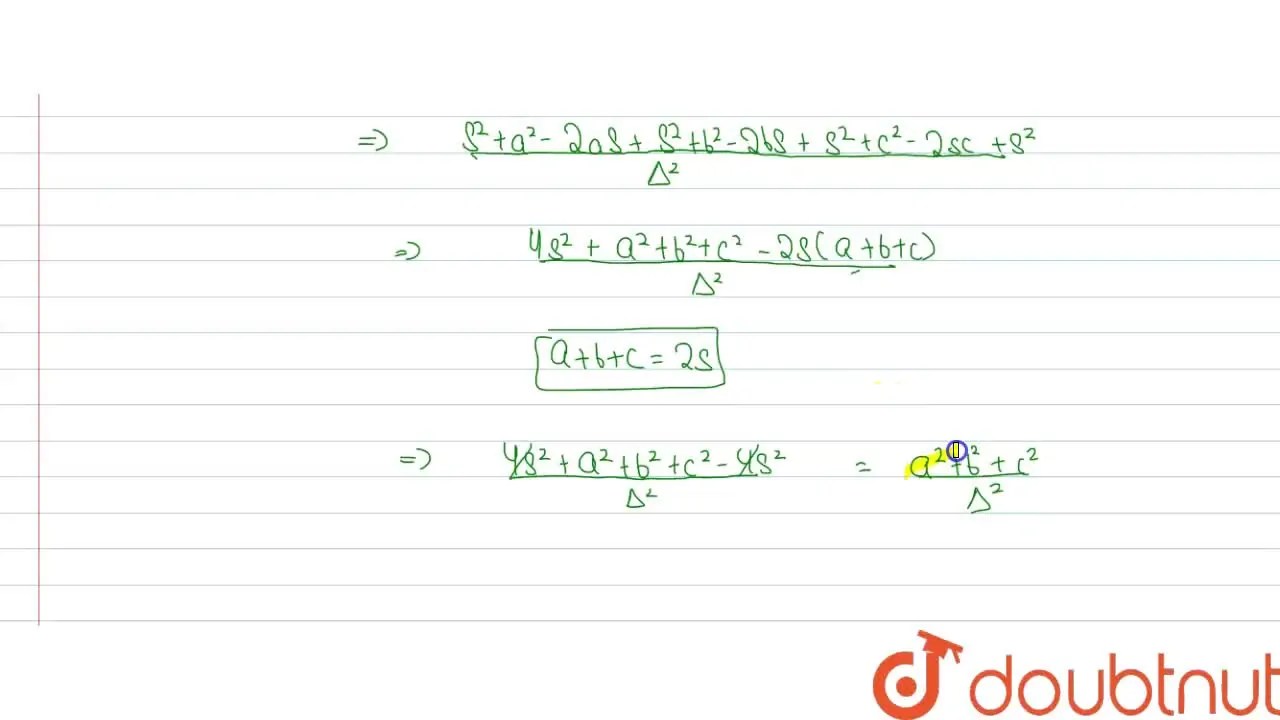 => S² + a² - 2aS + S² + b² - 2bS + S² + c² - 2sc + S²
Δ²
=> 4s² + a² + b² + c² - 2S(a + b + c)
Δ²
a + b + c = 2S
=> 4s² + a² + b² + c² - 4s² = a² + b² + c²
Δ² Δ²
doubtnut